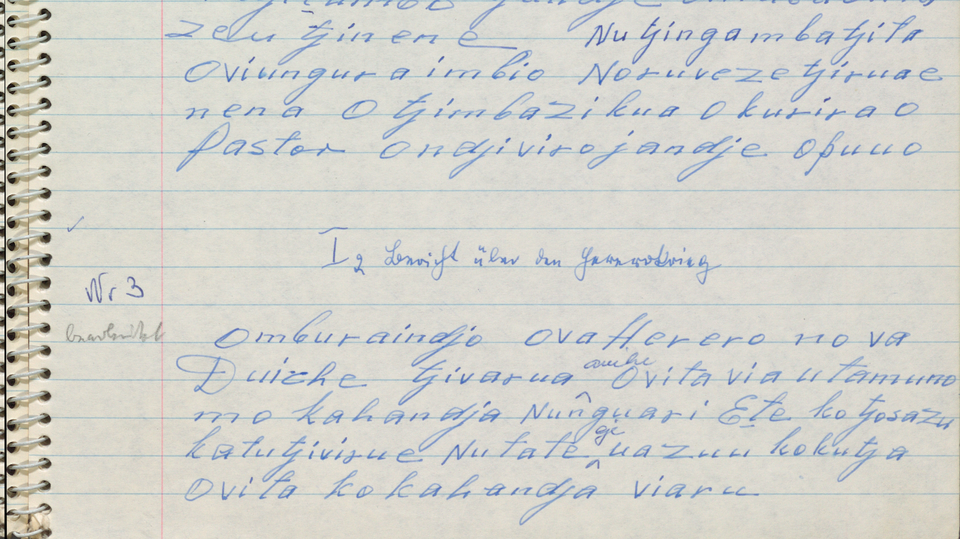 zeu tjinene Nutjingambatjita
Oviungura imbio Noruvezetjiruae
nena Otjimbazikua Okurira O
Pastor ondjivirojandje opuuo
I2 Bericht über den Hererokrieg
Nr 3
bearbeitet
omburaindjo ovaHerero no va
Duiche tjivarua ombe Ovita via utamuno
mo kahandja Nunguari Ete ko tjosazu
katutjivirue Nutate ge uazuu kokutja
Ovita ko kahandja viaru